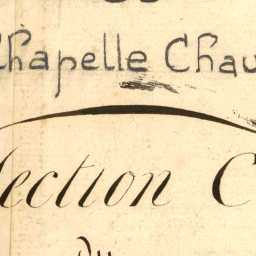 Chapelle Chau
lection C
du